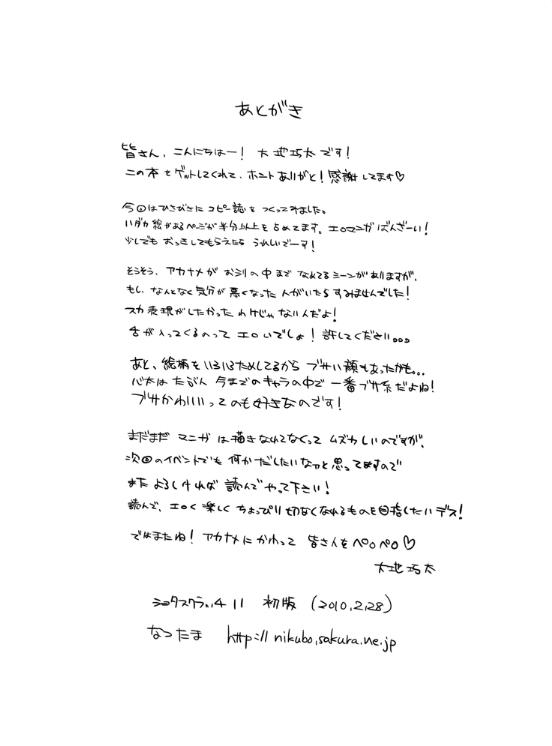 あとがき
皆さん、こんにちはー! 大地巧太です!
この本をゲットしてくれて、ホントありがと!感謝してます♡
今回はひさびさにコピー誌をつくってみました。
ハダカ絵があるページが半分以上を占めてます。エロマンガばんざーい!
少しでもおっきしてもらえたらうれしいでーす!
そうそう、アカナメがお尻の中までなめてるシーンがありますが、
もし、なんとなく気分が悪くなった人がいたらすみませんでした!
スカ表現がしたかったわけじゃないんだよ!
舌が入ってくるのってエロいでしょ!許してください。。。
あと、絵柄をいろいろためしてるからブサい顔もあったかも...
は たぶん今までのキャラの中で一番ブサ系だよね!
ブサかわいいってのも好きなのです!
まだまだマンガは描きなれてなくってムズカしいのですが、
次回のイベントでも何かだしたいなァと思ってますので
またよろしければ読んでやって下さい!
読んで、エロく楽しくちょっぴり切なくなれるものを目指したいデス!
ではまたね!アカナメにかわって皆さんをペロペロ♡
大地巧太
ショタスクラッチ11 初版 (2010.2.28)
なつたま http://nikubo.sakura.ne.jp